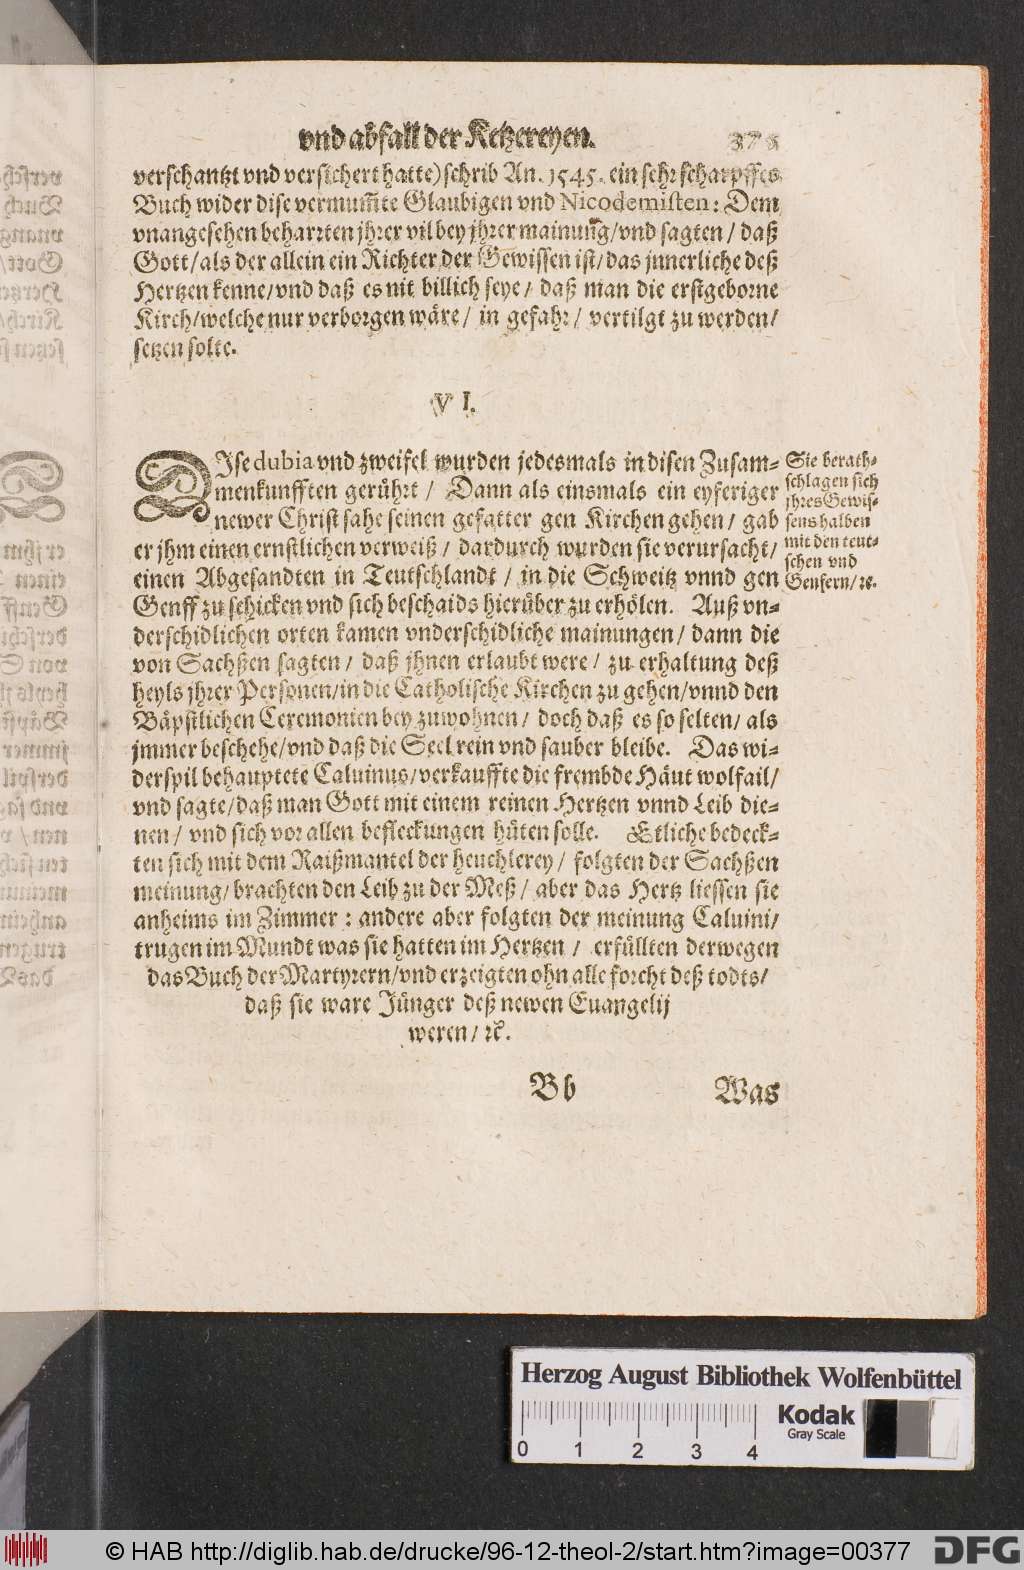 vnd abfall der Ketzereyen. 375
verschantzt vnd versichert hatte) schrib An. 1545. ein sehr scharpffes
Buch wider dise vermum̃te Glaubigen vnd Nicodemisten: Dem
vnangesehen beharrten jhrer vil bey jhrer mainung/ vnd sagten / daß
Gott/ als der allein ein Richter der Gewissen ist/ das jnnerliche deß
Hertzen kenne/ vnd daß es nit billich seye / daß man die erstgeborne
Kirch/ welche nur verborgen wäre / in gefahr / vertilgt zu werden/
setzen solte.
VI.
DIse dubia vnd zweifel wurden jedesmals in disen Zusam-
menkunfften gerührt / Dann als einsmals ein eyferiger
newer Christ sahe seinen gefatter gen Kirchen gehen / gab
er jhm einen ernstlichen verweiß / dardurch wurden sie verursacht/
einen Abgesandten in Teutschlandt / in die Schweitz vnnd gen
Genff zu schicken vnd sich beschaids hierüber zu erhölen. Auß vn-
derschidlichen orten kamen vnderschidliche mainungen / dann die
von Sachßen sagten / daß jhnen erlaubt were / zu erhaltung deß
heyls jhrer Personen/ in die Catholische Kirchen zu gehen/ vnnd den
Bäpstlichen Ceremonien bey zuwohnen / doch daß es so selten/ als
jmmer beschehe/ vnd daß die Seel rein vnd sauber bleibe. Das wi-
derspil behauptete Caluinus/ verkauffte die frembde Häut wolfail/
vnd sagte/ daß man Gott mit einem reinen Hertzen vnnd Leib die-
nen / vnd sich vor allen befleckungen hüten solle. Etliche bedeck-
ten sich mit dem Raißmantel der heuchlerey / folgten der Sachßen
meinung/ brachten den Leib zu der Meß / aber das Hertz liessen sie
anheims im Zimmer : andere aber folgten der meinung Caluini/
trugen im Mundt was sie hatten im Hertzen / erfüllten derwegen
das Buch der Martyrern/ vnd erzeigten ohn alle forcht deß todts/
daß sie ware Jünger deß newen Euangelij
weren / ꝛc.
Sie berath-
schlagen sich
jhres Gewis-
sens halben
mit den teut-
schen vnd
Genfern/ ꝛc.
Bb Was
Herzog August Bibliothek Wolfenbüttel
0 1 2 3 4
Kodak
Gray Scale
© HAB http://diglib.hab.de/drucke/96-12-theol-2/start.htm?image=00377
DFG